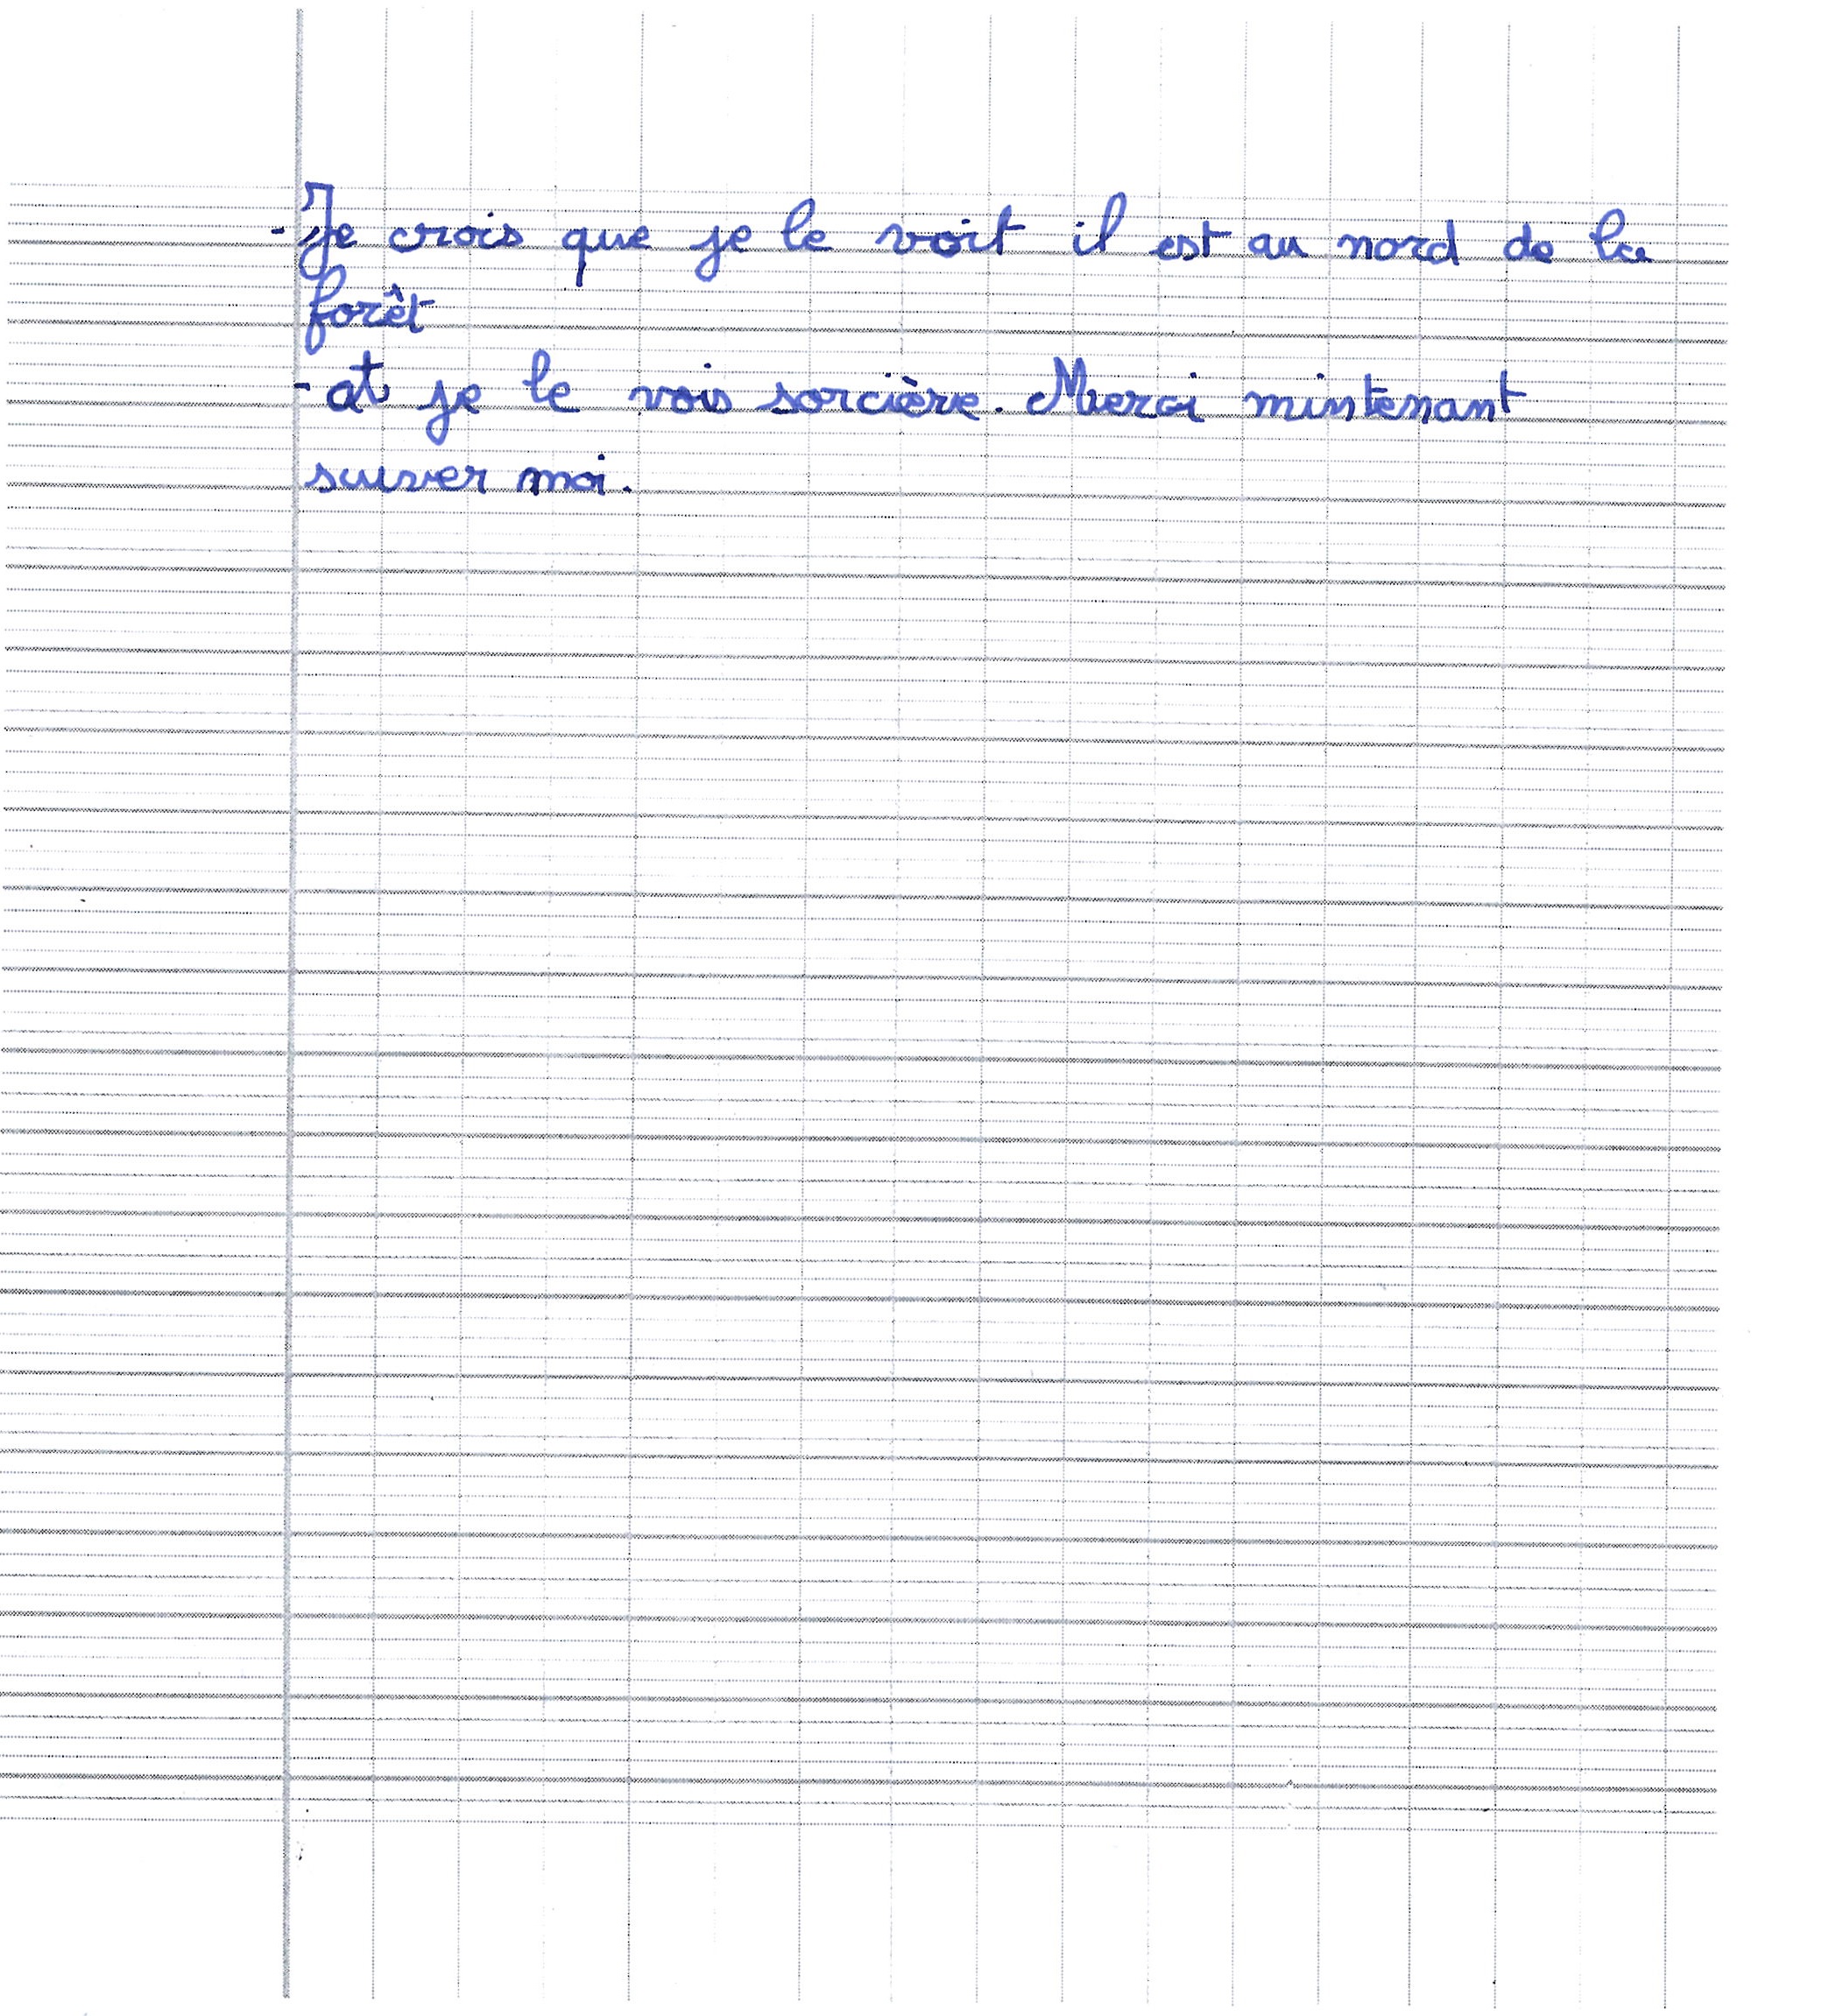 - Je crois que je le voit il est au nord de la
forêt
- at je le vois sorcière. Merci mintenant
suiver moi.